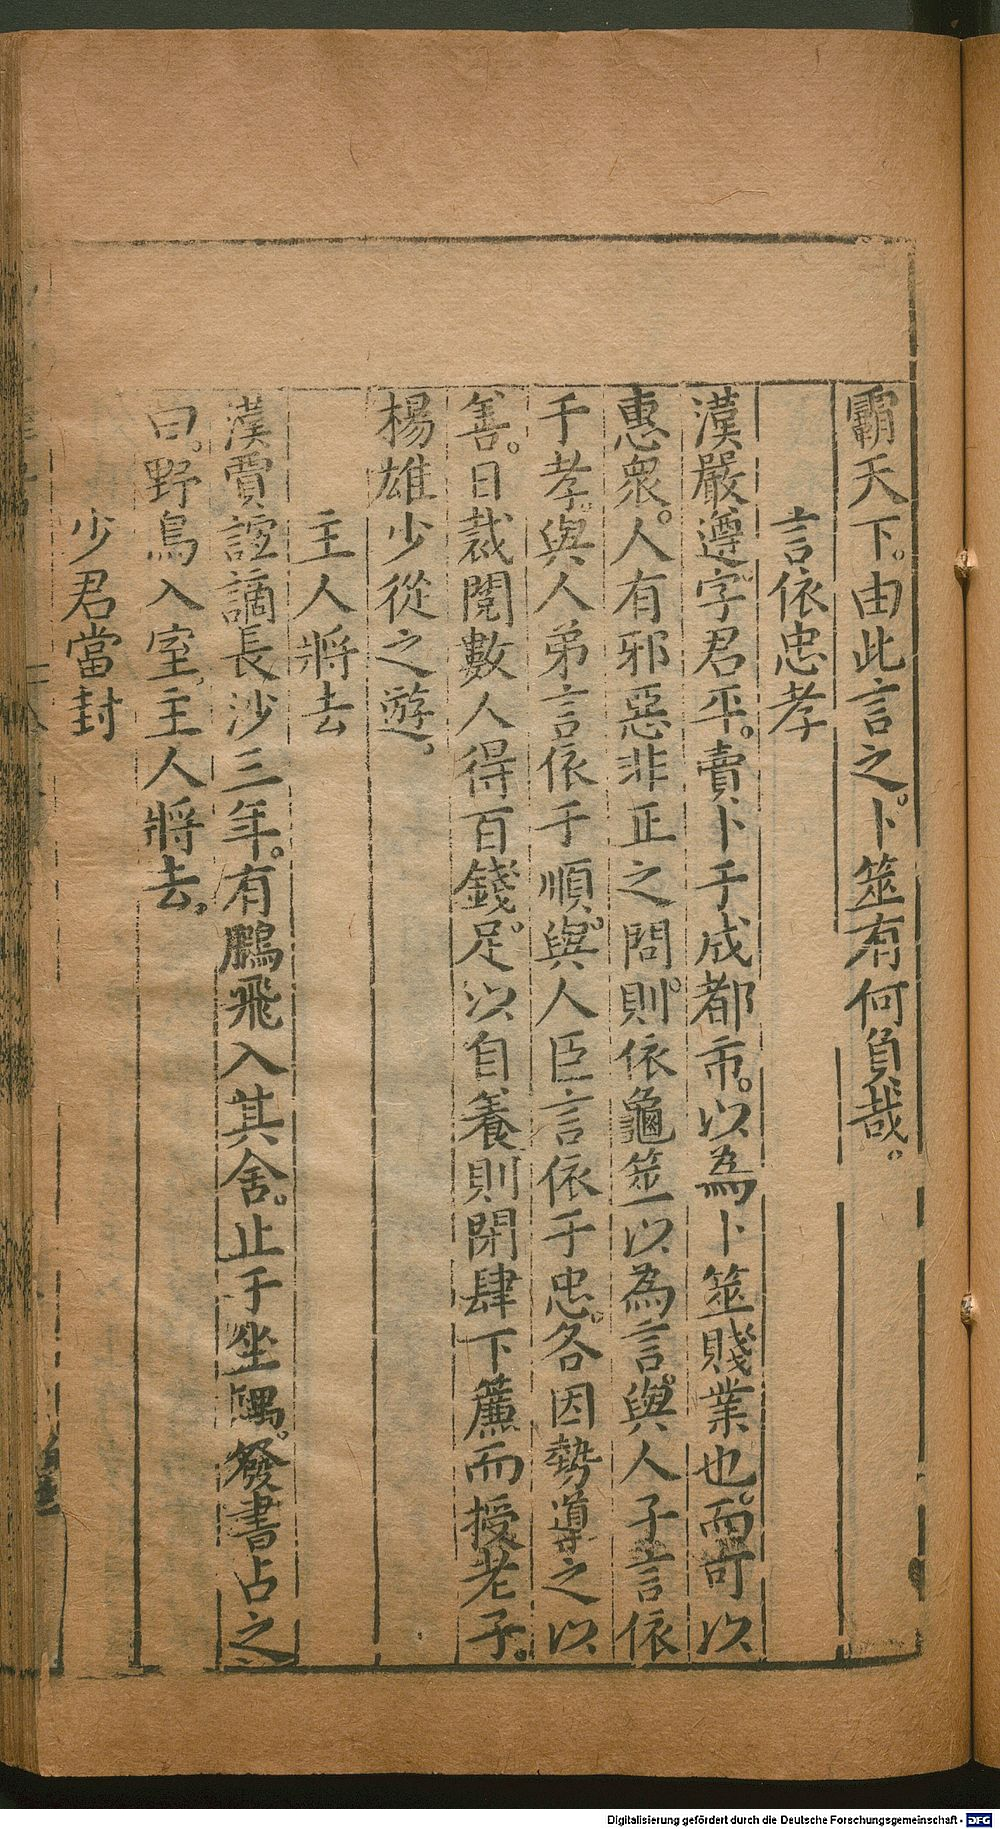 霸天下。由此言之。卜筮有何負哉。
言依忠孝
漢嚴遵字君平。賣卜于成都市。以為卜筮賤業也。而可以
惠衆。人有邪惡非正之問。則依龜筮以為言。與人子言依
于孝。與人弟言依于順。與人臣言依于忠。各因勢導之以
善。日裁閱數人得百錢。足以自養則閉肆下簾而授老子。
楊雄少從之遊。
主人將去
漢賈誼謫長沙三年。有鵩飛入其舍。止于坐隅。發書占之
曰。野鳥入室。主人將去。
少君當封
Digitalisierung gefördert durch die Deutsche Forschungsgemeinschaft - DFG